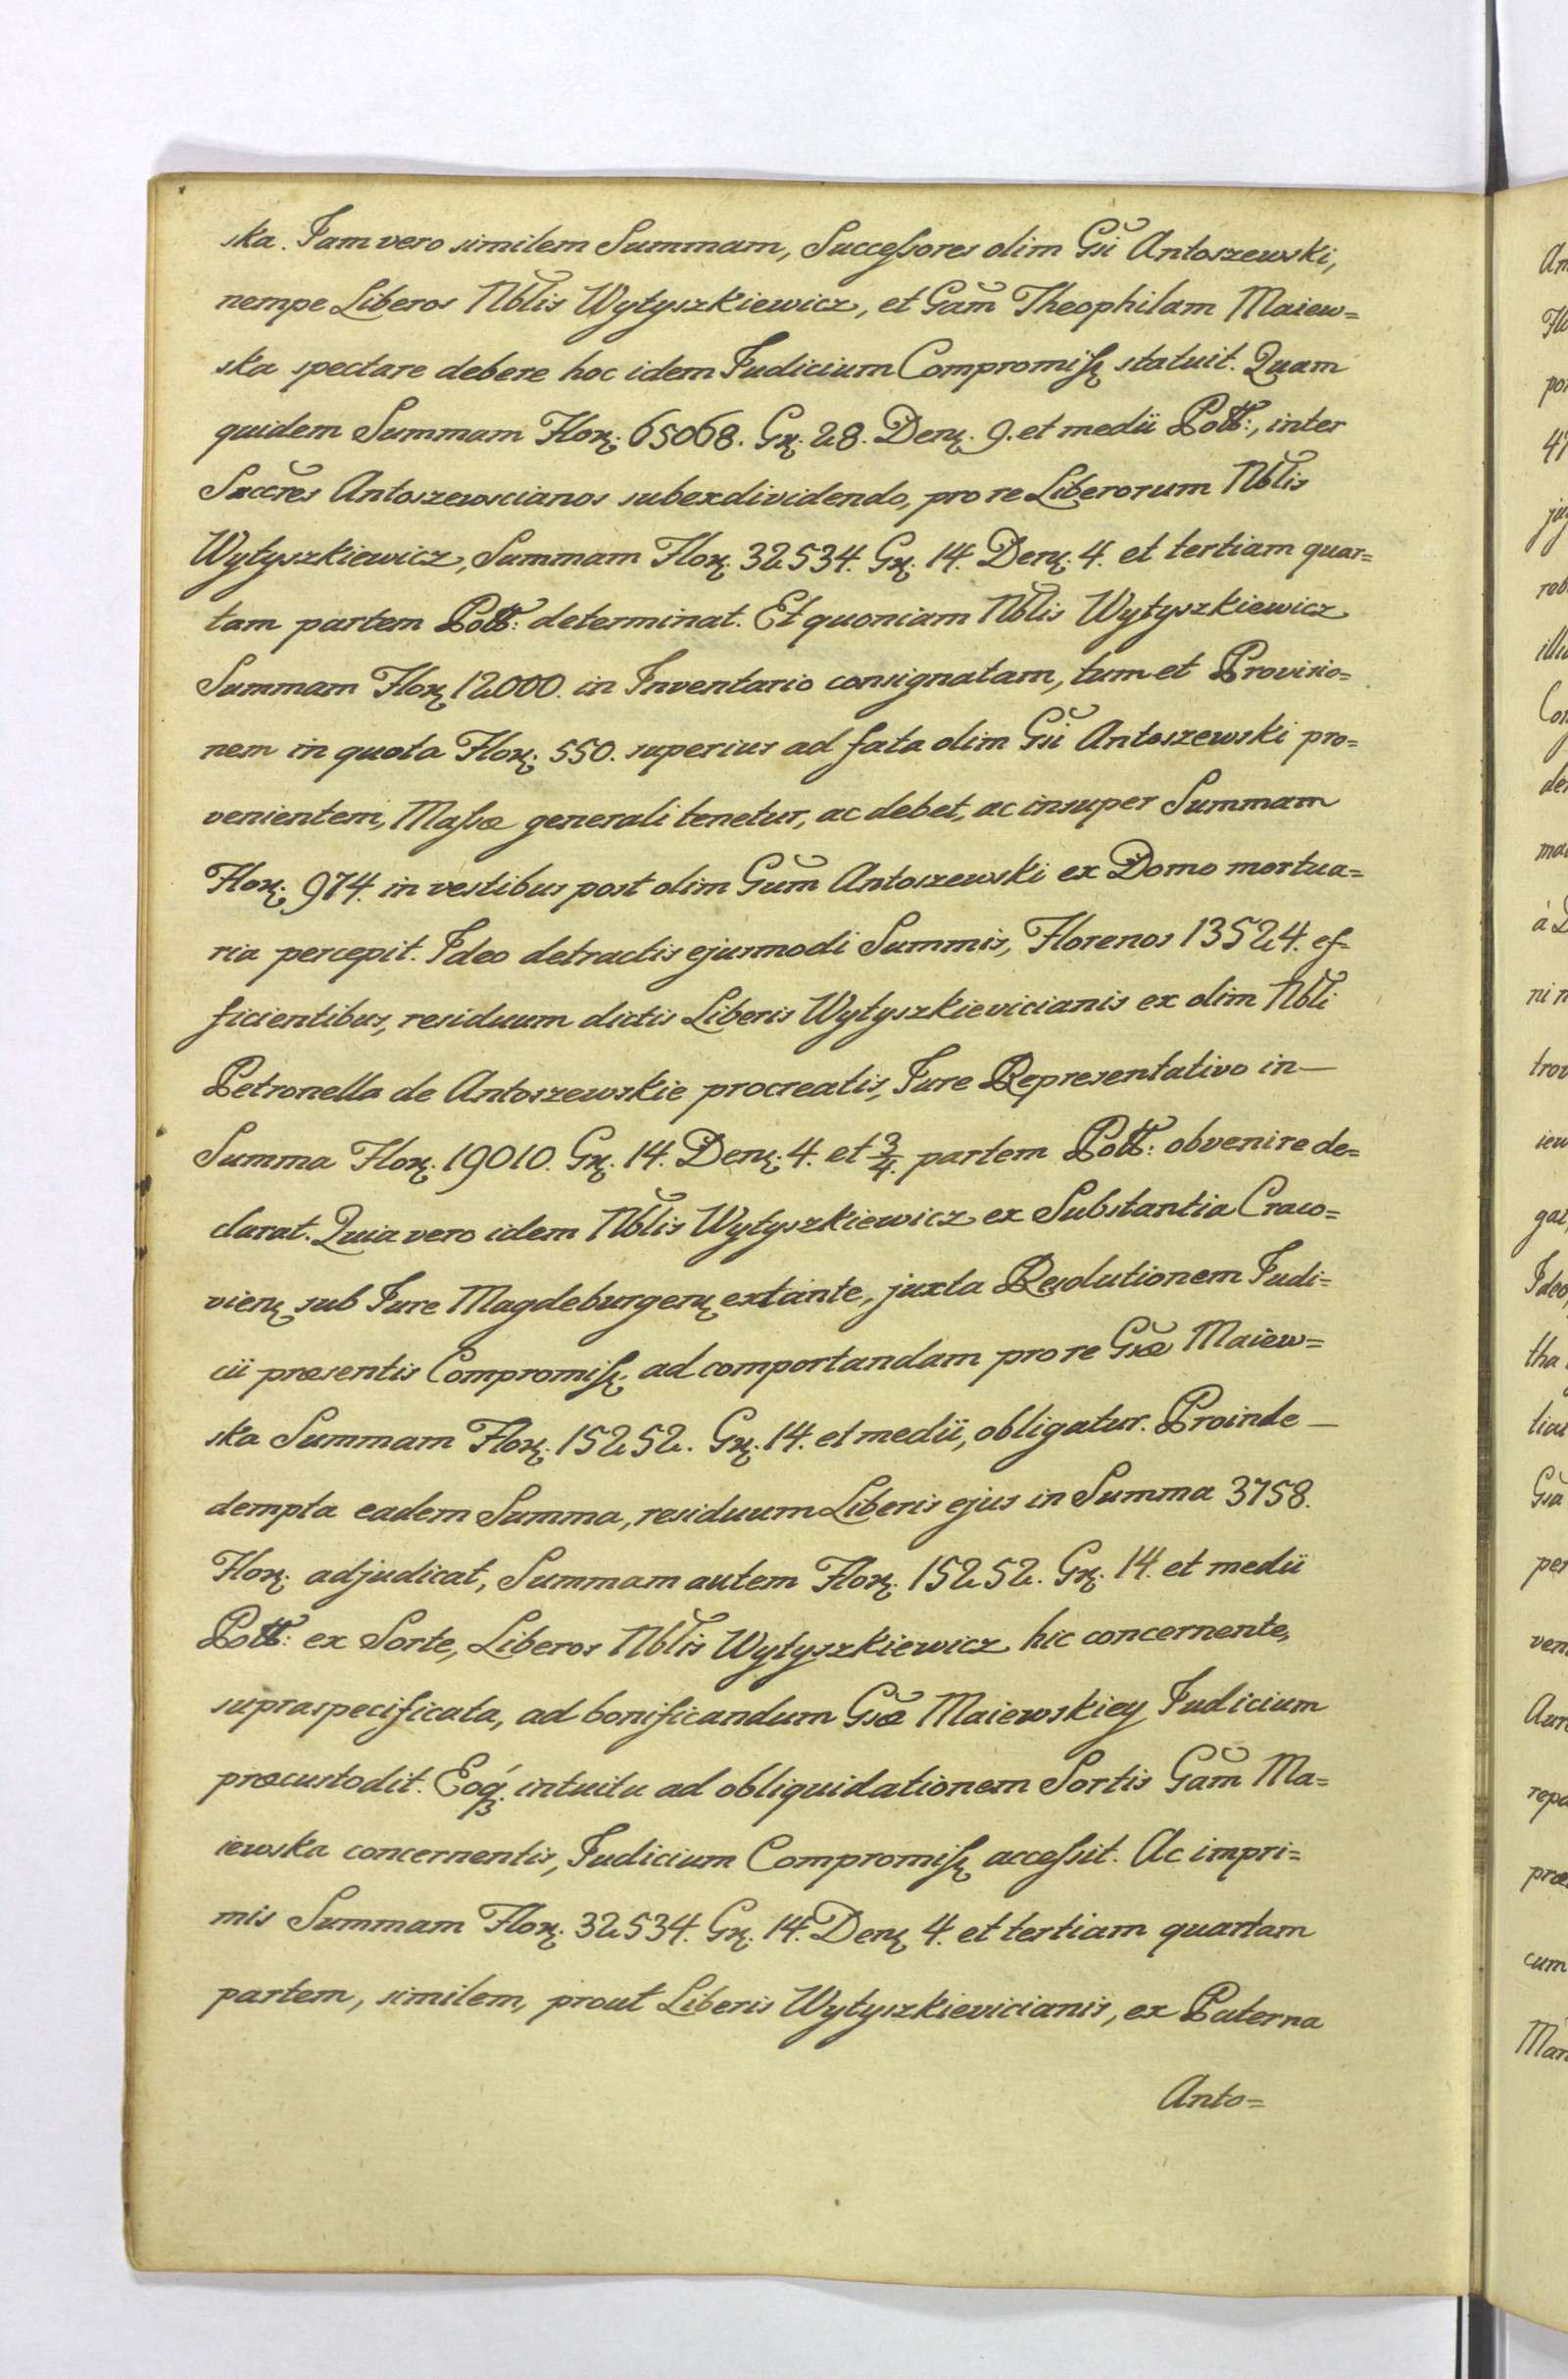 ska. Jam vero similem Summam, Successores olim Gsi Antoszewski,
nempe Liberos Nblis Wytyszkiewicz, et Gam Theophilam Maiew=
ska spectare debere hoc idem Judicium Compromiss: statuit. Quam
quidem Summam Flor: 65068. Gr: 28. Den: 9. et medii Poll:, inter
Succres Antoszewscianos subexdividendo, pro re Liberorum Nblis
Wytyszkiewicz, Summam Flor: 32534. Gr: 14. Den: 4. et tertiam quar=
tam partem Poll: determinat. Et quoniam Nblis Wytyszkiewicz
Summam Flor: 12000. in Inventario consignatam, tum et Provisio=
nem in quota Flor: 550. superius ad fata olim Gsi Antoszewski pro=
venientem, Massæ generali tenetur, ac debet, ac insuper Summam
Flor: 974. in vestibus post olim Gum Antoszewski ex Domo mortua=
ria percepit. Ideo detractis ejusmodi Summis, Florenos 13524. ef=
ficientibus, residuum dictis Liberis Wytyszkievicianis ex olim Nbli
Petronella de Antoszewskie procreatis, Jure Representativo in—
Summa Flor: 19010. Gr: 14. Den: 4. et 3/4. partem Poll: obvenire de=
clarat. Quia vero idem Nblis Wytyszkiewicz ex Substantia Craco=
vien: sub Jure Magdeburgen: extante, juxta Resolutionem Judi=
cii præsentis Compromiss: ad comportandam pro re Gsæ Maiew=
ska Summam Flor: 15252. Gr: 14. et medii, obligatur. Proinde—
dempta eadem Summa, residuum Liberis ejus in Summa 3758.
Flor: adjudicat, Summam autem Flor: 15252. Gr: 14. et medii
Poll: ex Sorte, Liberos Nblis Wytyszkiewicz hic concernente,
supraspecificata, ad bonificandum Gsæ Maiewskiey Judicium
præcustodit. Eoq́: intuitu ad obliquidationem Sortis Gam Ma=
iewska concernentis, Judicium Compromiss: accessit. Ac impri=
mis Summam Flor: 32534. Gr: 14. Den: 4. et tertiam quartam
partem, similem, prout Liberis Wytyszkievicianis, ex Paterna
Anto=